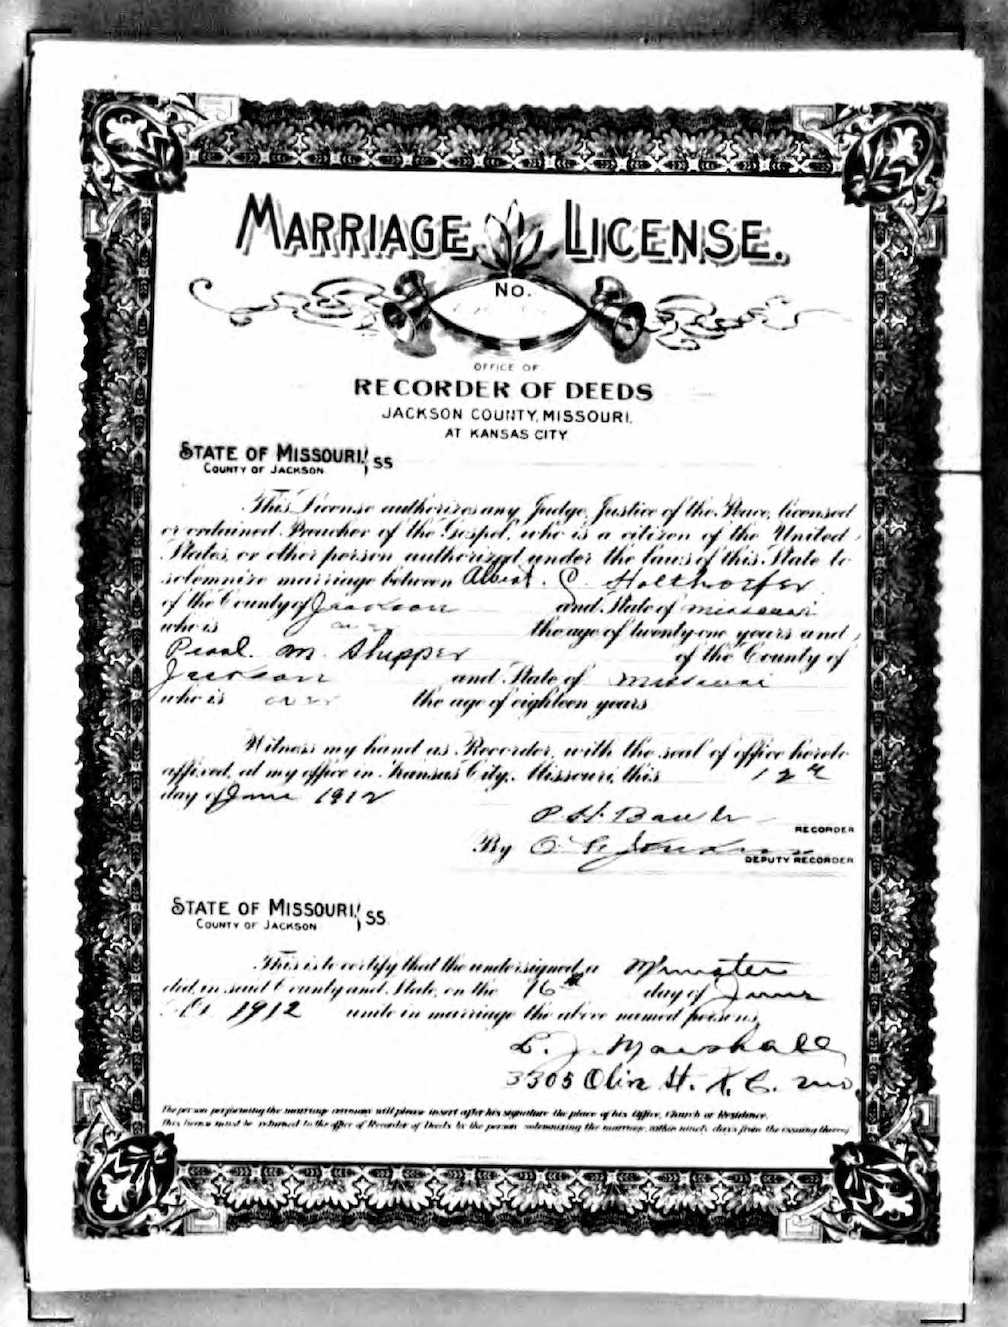 MARRIAGE LICENSE.
No.
OFFICE OF
RECORDER OF DEEDS
JACKSON COUNTY, MISSOURI,
AT KANSAS CITY
STATE OF MISSOURI, } SS
COUNTY OF JACKSON
This License authorizes any Judge, Justice of the Peace, licensed
or ordained Preacher of the Gospel, who is a citizen of the United
States, or other person authorized under the laws of this State to
solemnize marriage between Albert C. Holthoefer
of the County of Jackson and State of Missouri
who is over the age of twenty-one years and
Pearl M. Shipper of the County of
Jackson and State of Missouri
who is over the age of eighteen years
Witness my hand as Recorder, with the seal of office hereto
affixed, at my office in Kansas City, Missouri, this 12th
day of June 1912
RECORDER
By
DEPUTY RECORDER
STATE OF MISSOURI, } SS
COUNTY OF JACKSON
This is to certify that the undersigned, a Minister
did, in said County and State, on the 16th day of June
1912 unite in marriage the above named persons
L. J. Marshall
3305 Olive St. K. C. Mo.
The person performing the marriage ceremony will please insert after his signature the place of his Office, Church or Residence.
This license must be returned to the office of Recorder of Deeds by the person solemnizing the marriage, within ninety days from the issuing thereof